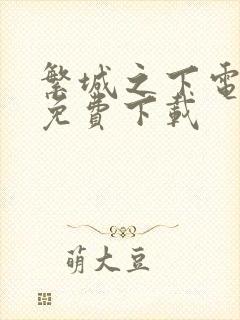 繁城之下電
免費下載
萌大豆